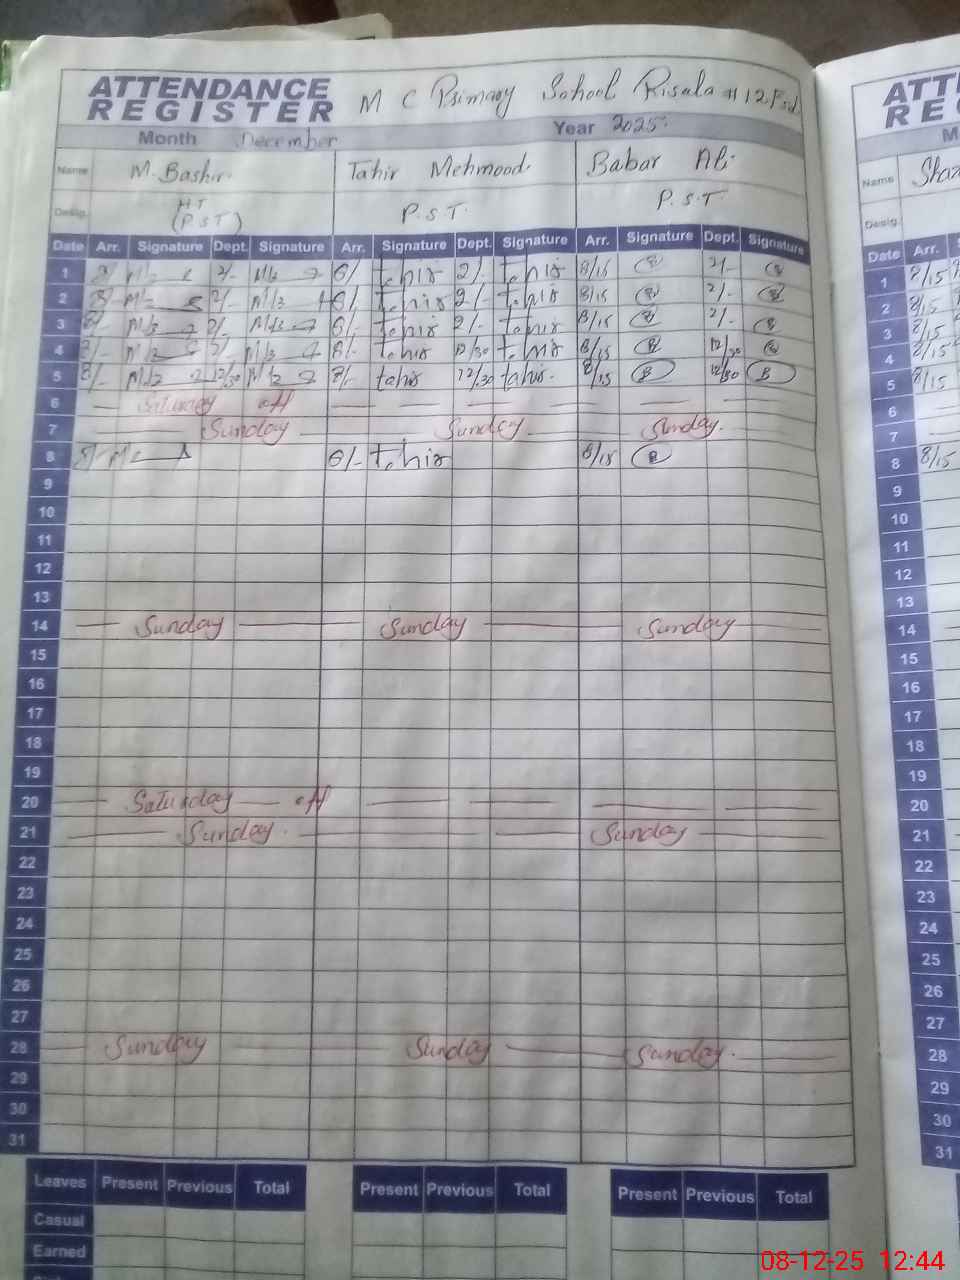 ATTENDANCE REGISTER M C Primary School Risala # 12
Month December Year 2025
Name M. Bashir Tahir Mehmood Babar Ali
Desig. HT (P.S.T) P.S.T. P.S.T.
Date Arr. Signature Dept. Signature Arr. Signature Dept. Signature Arr. Signature Dept. Signature
1 8/ 2/- 8/ tahir 2/- tahir 8/15 2/-
2 8/ 2/- 8/ tahir 2/- tahir 8/15 2/-
3 8/- 2/- 8/- tahir 2/- tahir 8/15 2/-
4 8/- 8/- tahir 12/30 tahir 8/15 12/30
5 8/- 12/30 8/- tahir 12/30 tahir. 8/15 B 12/30 B
6 Saturday off
7 Sunday Sunday Sunday.
8 8/- 8/- tahir 8/15
9
10
11
12
13
14 Sunday Sunday Sunday
15
16
17
18
19
20 Saturday off
21 Sunday. Sunday
22
23
24
25
26
27
28 Sunday Sunday Sunday.
29
30
31
Leaves Present Previous Total Present Previous Total Present Previous Total
Casual
Earned
Name
Desig.
Date Arr.
1 8/15
2 8/15
3 8/15
4 8/15
5 8/15
6
7
8 8/15
9
10
11
12
13
14
15
16
17
18
19
20
21
22
23
24
25
26
27
28
29
30
31
08-12-25 12:44